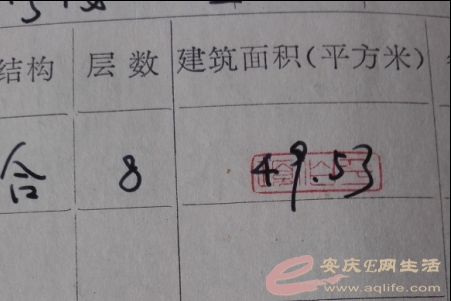 结构 层数 建筑面积(平方米)
合 8 49.53
安庆E网生活
www.aqlife.com